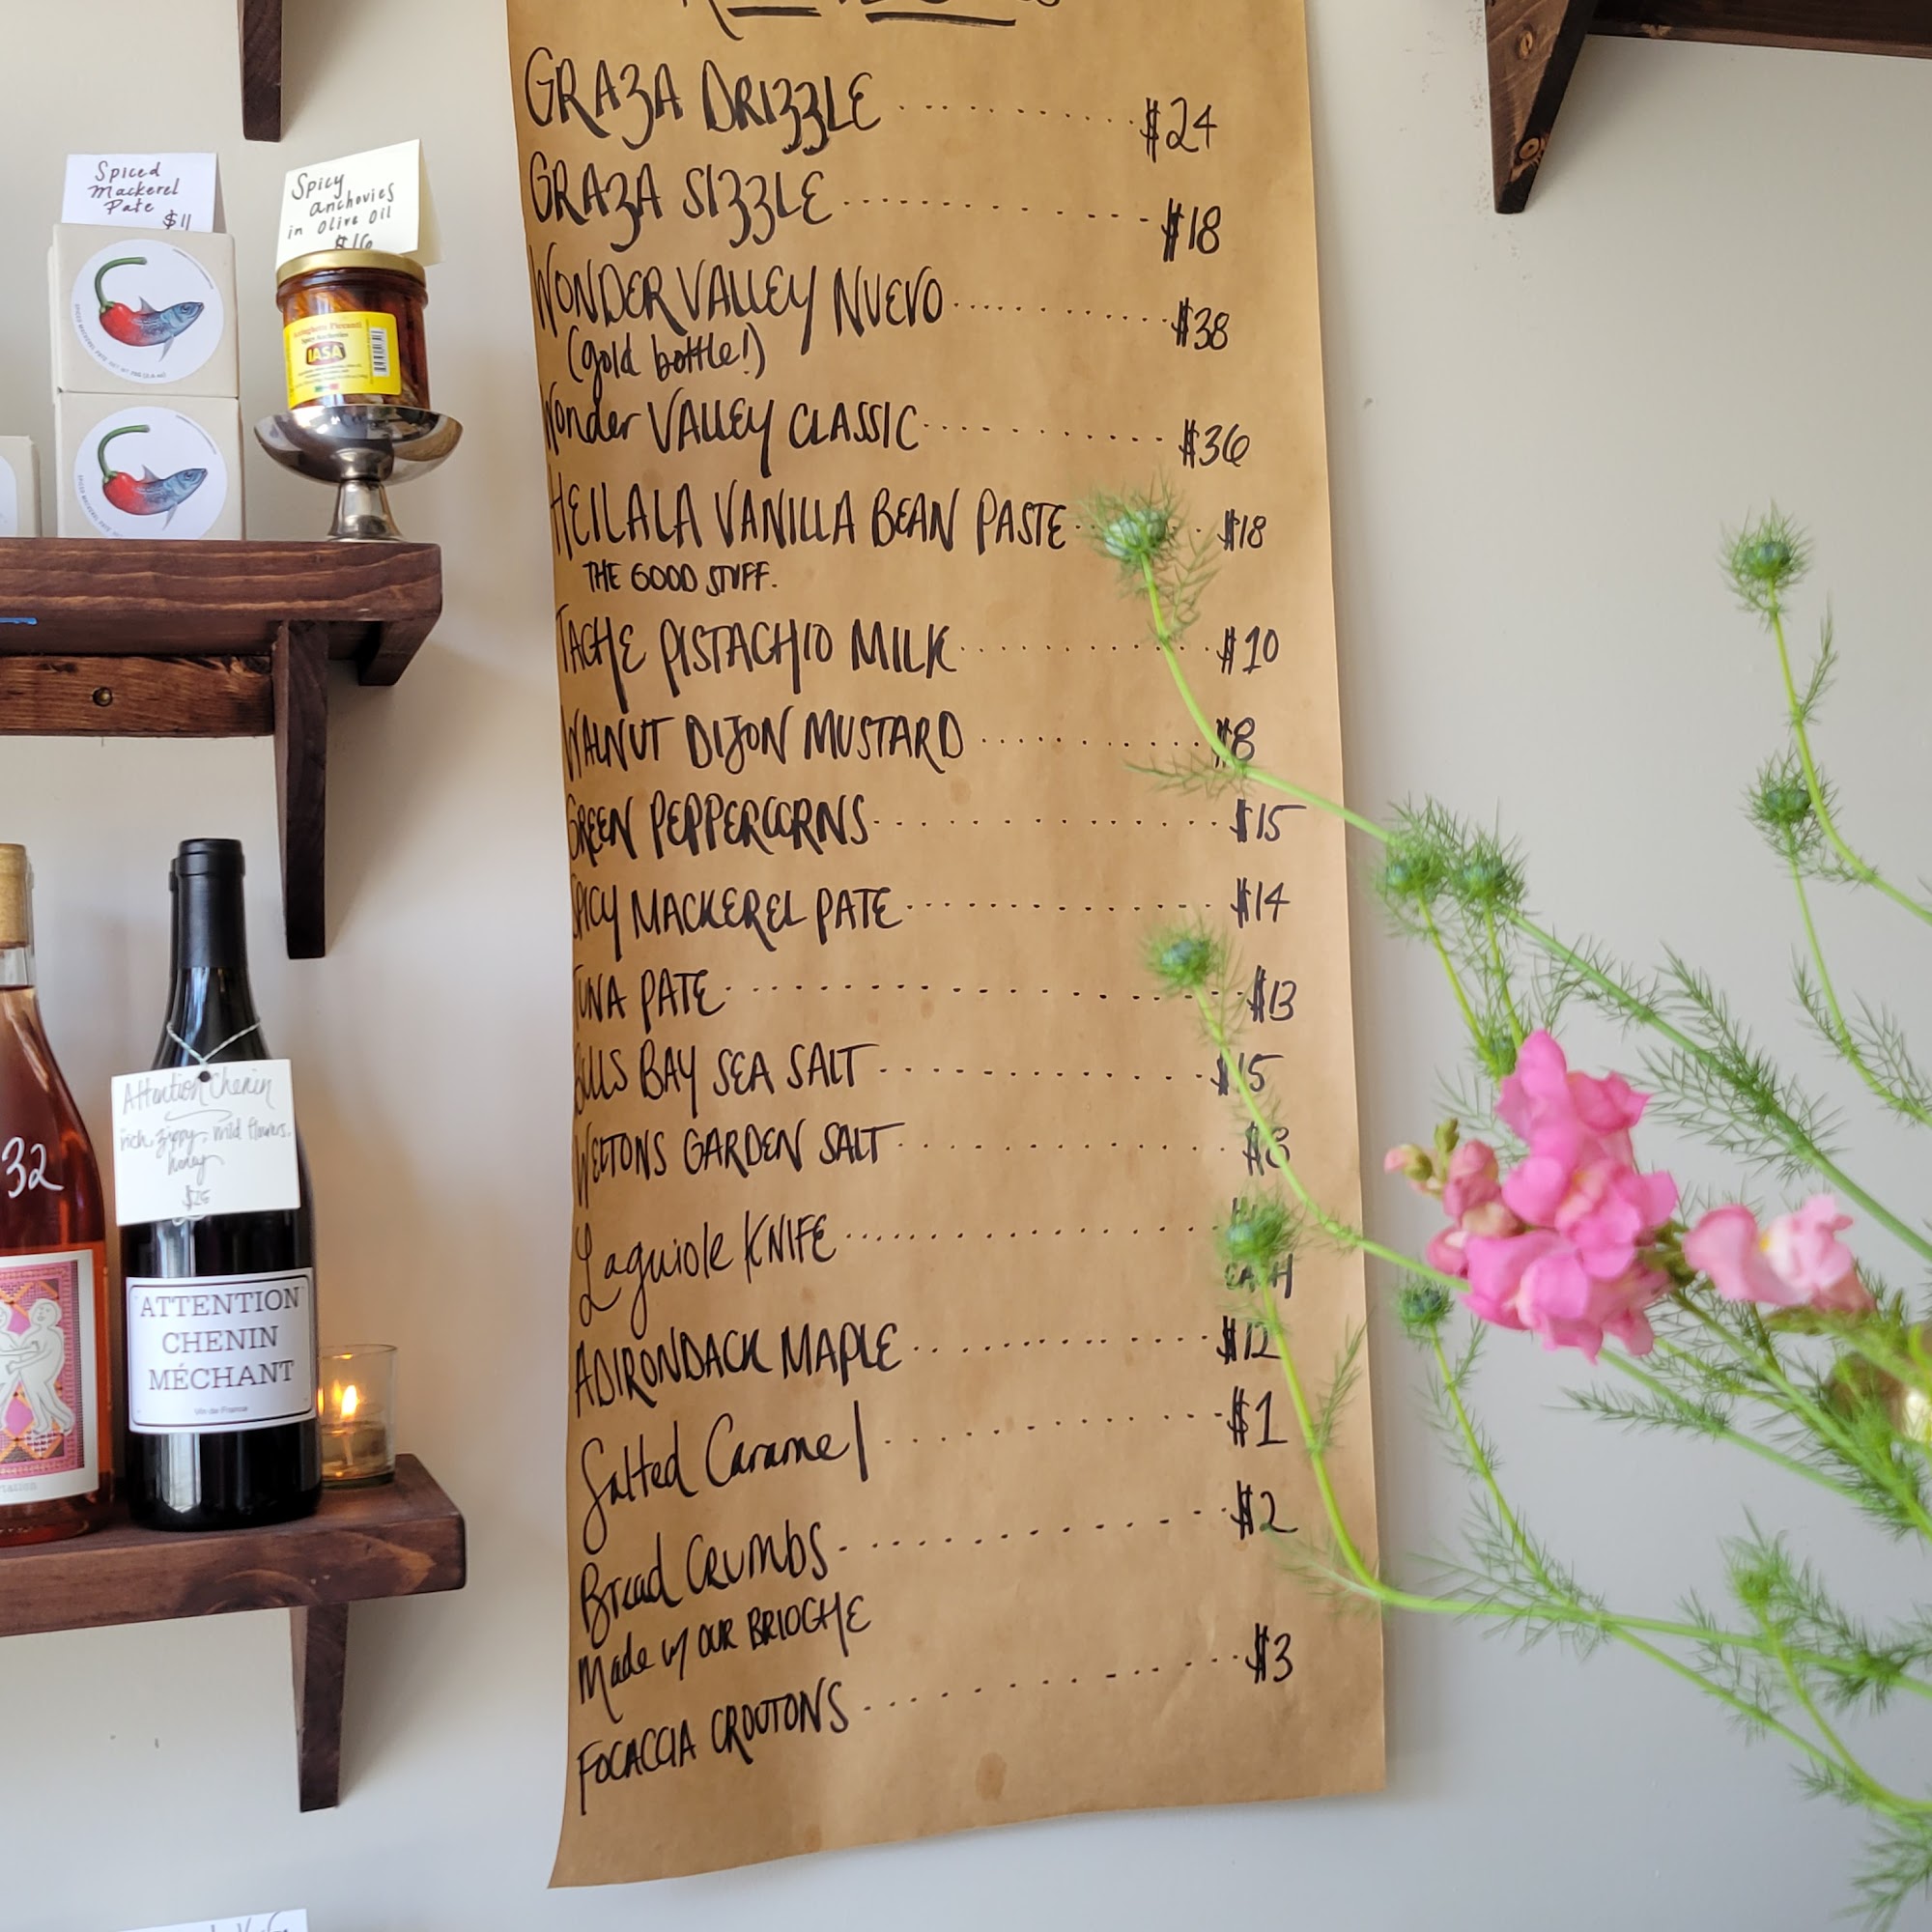 Spiced
Mackerel
Pate
$11
Spicy
anchovies
in olive oil
$16
Acciughette Piccanti
Spicy Anchovies
IASA
32
Attention Chenin
rich, zippy, wild flowers,
honey
ATTENTION
CHENIN
MÉCHANT
Vin de France
GRAZA DRIZZLE $24
GRAZA SIZZLE $18
WONDER VALLEY NUEVO $38
(gold bottle!)
Wonder VALLEY CLASSIC $36
HEILALA VANILLA BEAN PASTE $18
THE GOOD STUFF.
TACHE PISTACHIO MILK $10
WALNUT DIJON MUSTARD $8
GREEN PEPPERCORNS $15
SPICY MACKEREL PATE $14
TUNA PATE $13
BULLS BAY SEA SALT $15
WELTONS GARDEN SALT $8
Laguiole KNIFE
ADIRONDACK MAPLE $12
Salted Caramel $1
Bread Crumbs $2
Made w/ OUR BRIOCHE
FOCACCIA CROUTONS $3